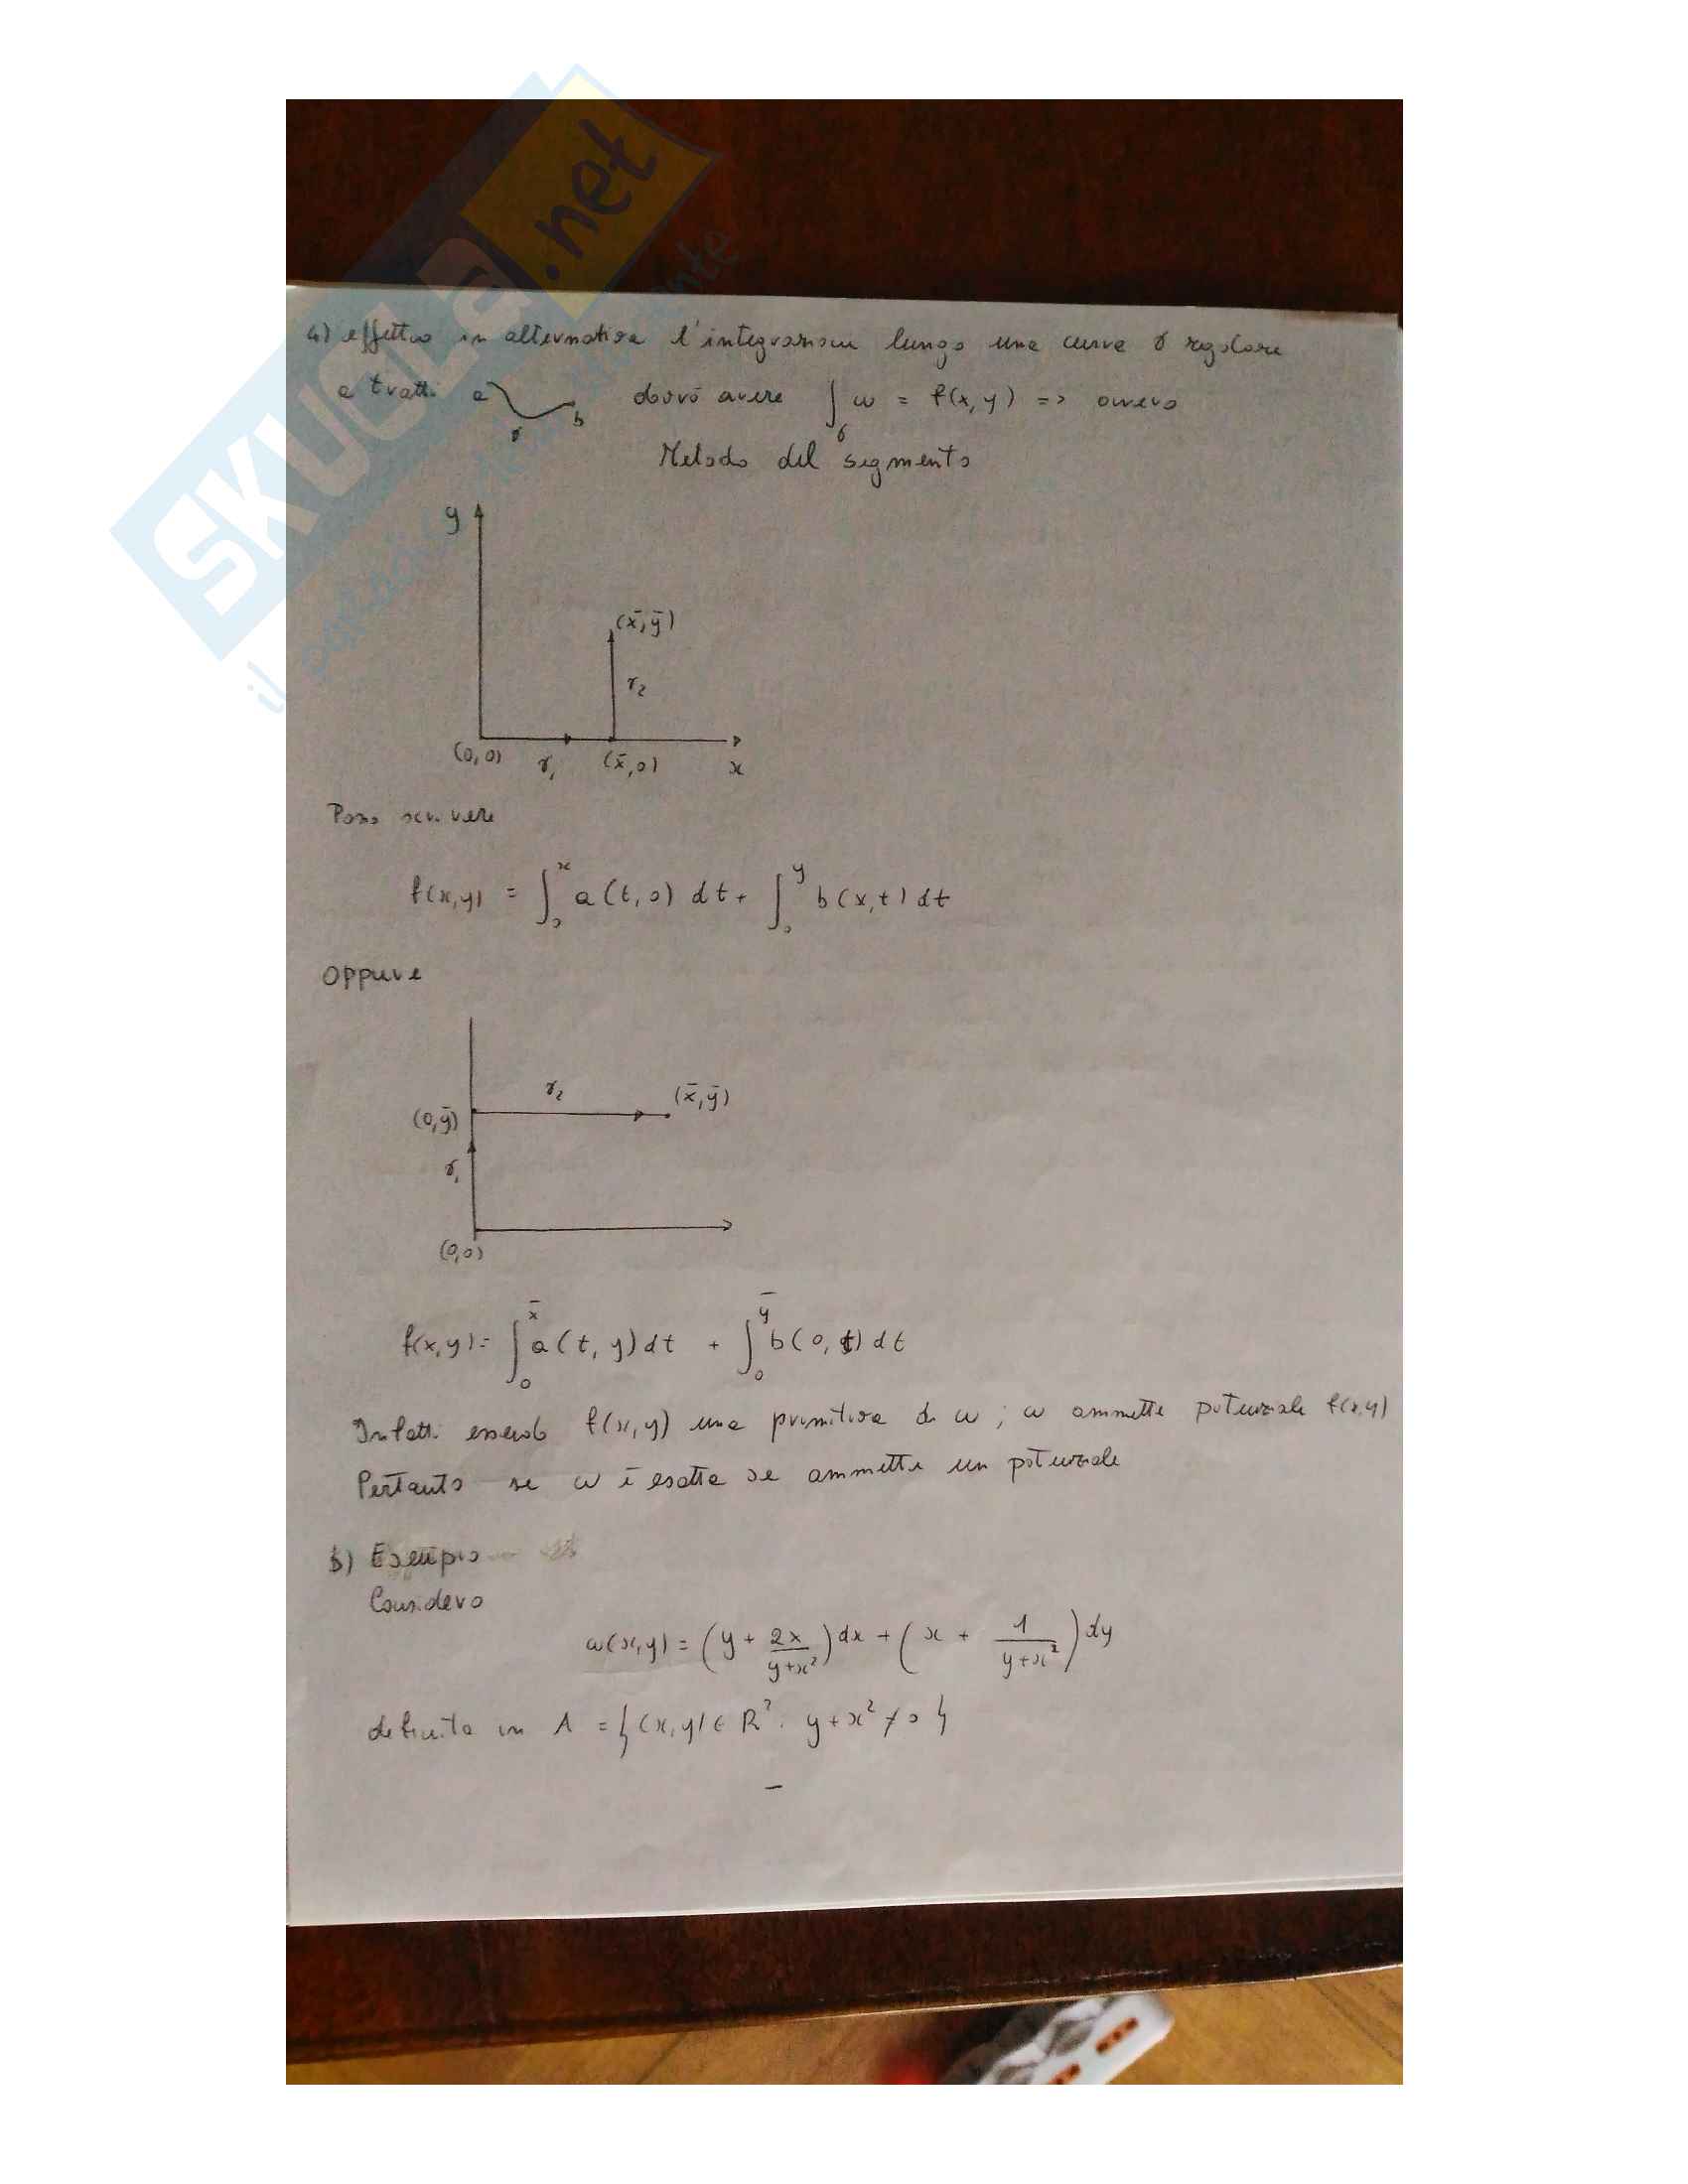 SKUOLA.net
4) effettuo in alternativa l'integrazione lungo una curva γ regolare
a tratti a γ b dovrò avere ∫_γ ω = f(x,y) => ovvero
Metodo del segmento
y
(x̄,ȳ)
γ₂
(0,0) γ₁ (x̄,0) x
Posso scrivere
f(x,y) = ∫₀ˣ a(t,0) dt + ∫₀ʸ b(x,t) dt
oppure
γ₂ (x̄,ȳ)
(0,ȳ)
γ₁
(0,0)
f(x,y) = ∫₀^x̄ a(t,y) dt + ∫₀^ȳ b(0,t) dt
Infatti essendo f(x,y) una primitiva di ω; ω ammette potenziale f(x,y)
Pertanto se ω è esatta se ammette un potenziale
5) Esempio
Considero
ω(x,y) = (y + 2x/(y+x²)) dx + (x + 1/(y+x²)) dy
definita in A = {(x,y) ∈ R²: y+x² ≠ 0}